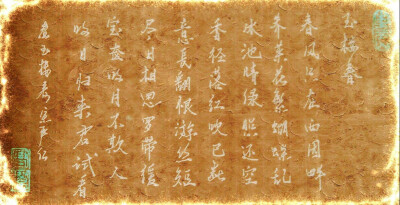 玉楼春
春风只在西园畔
荠菜花繁蝴蝶乱
冰池晴绿照还空
香径落红吹已断
意长翻恨游丝短
尽日相思罗带缓
宝奁明月不欺人
明日归来君试看
玉楼春